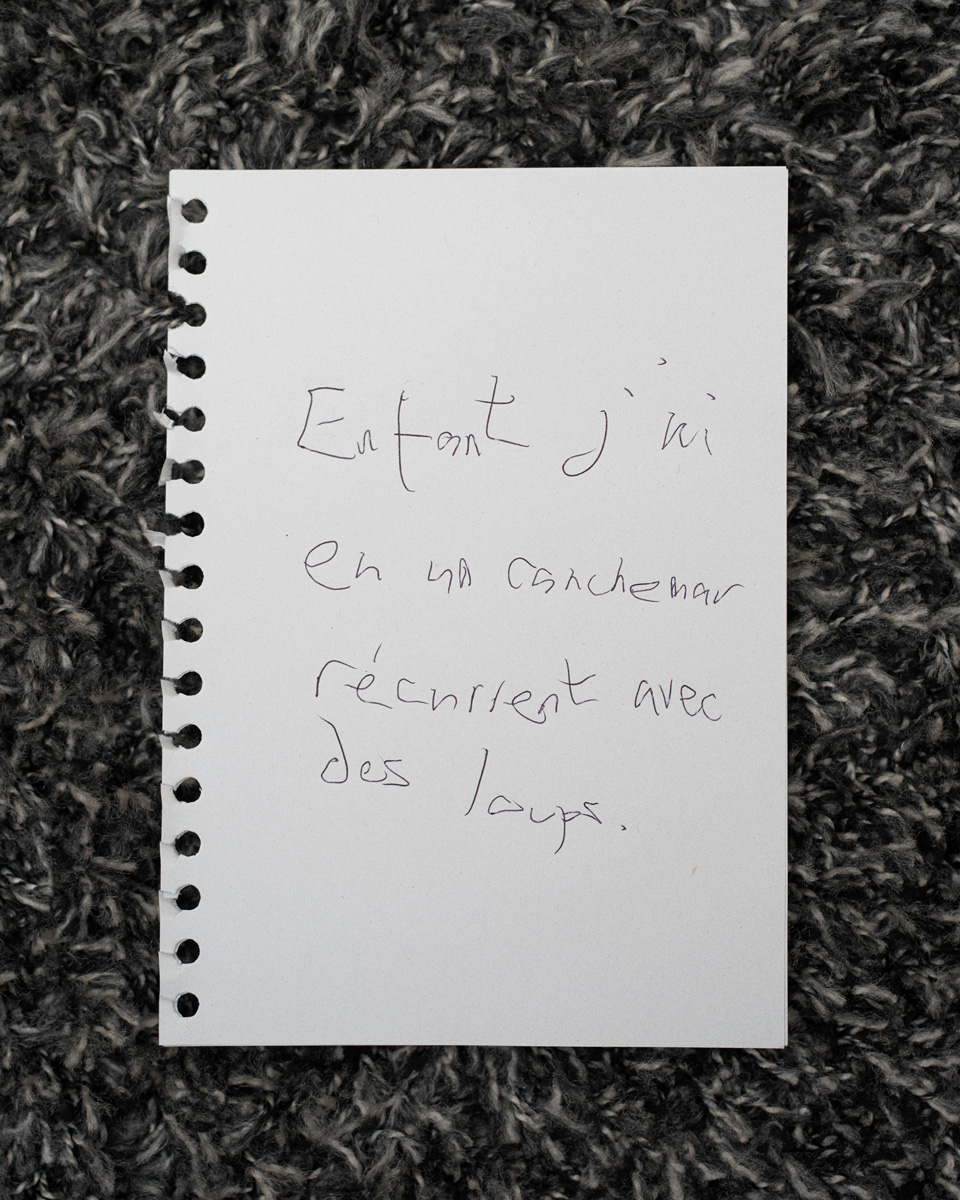 Enfant j'ai
eu un cauchemar
récurrent avec
des loups.